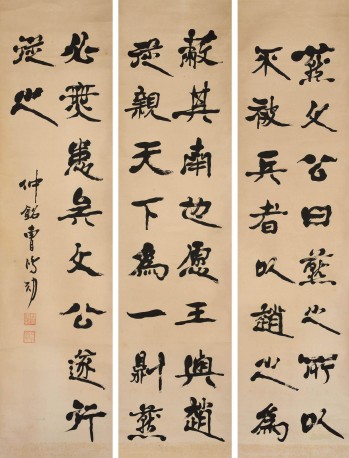 燕文公曰燕之所以
不被兵者以趙之為
蔽其南也愿王與趙
從親天下為一則燕
必無患矣文公遂
從之
仲銘曹鴻勛